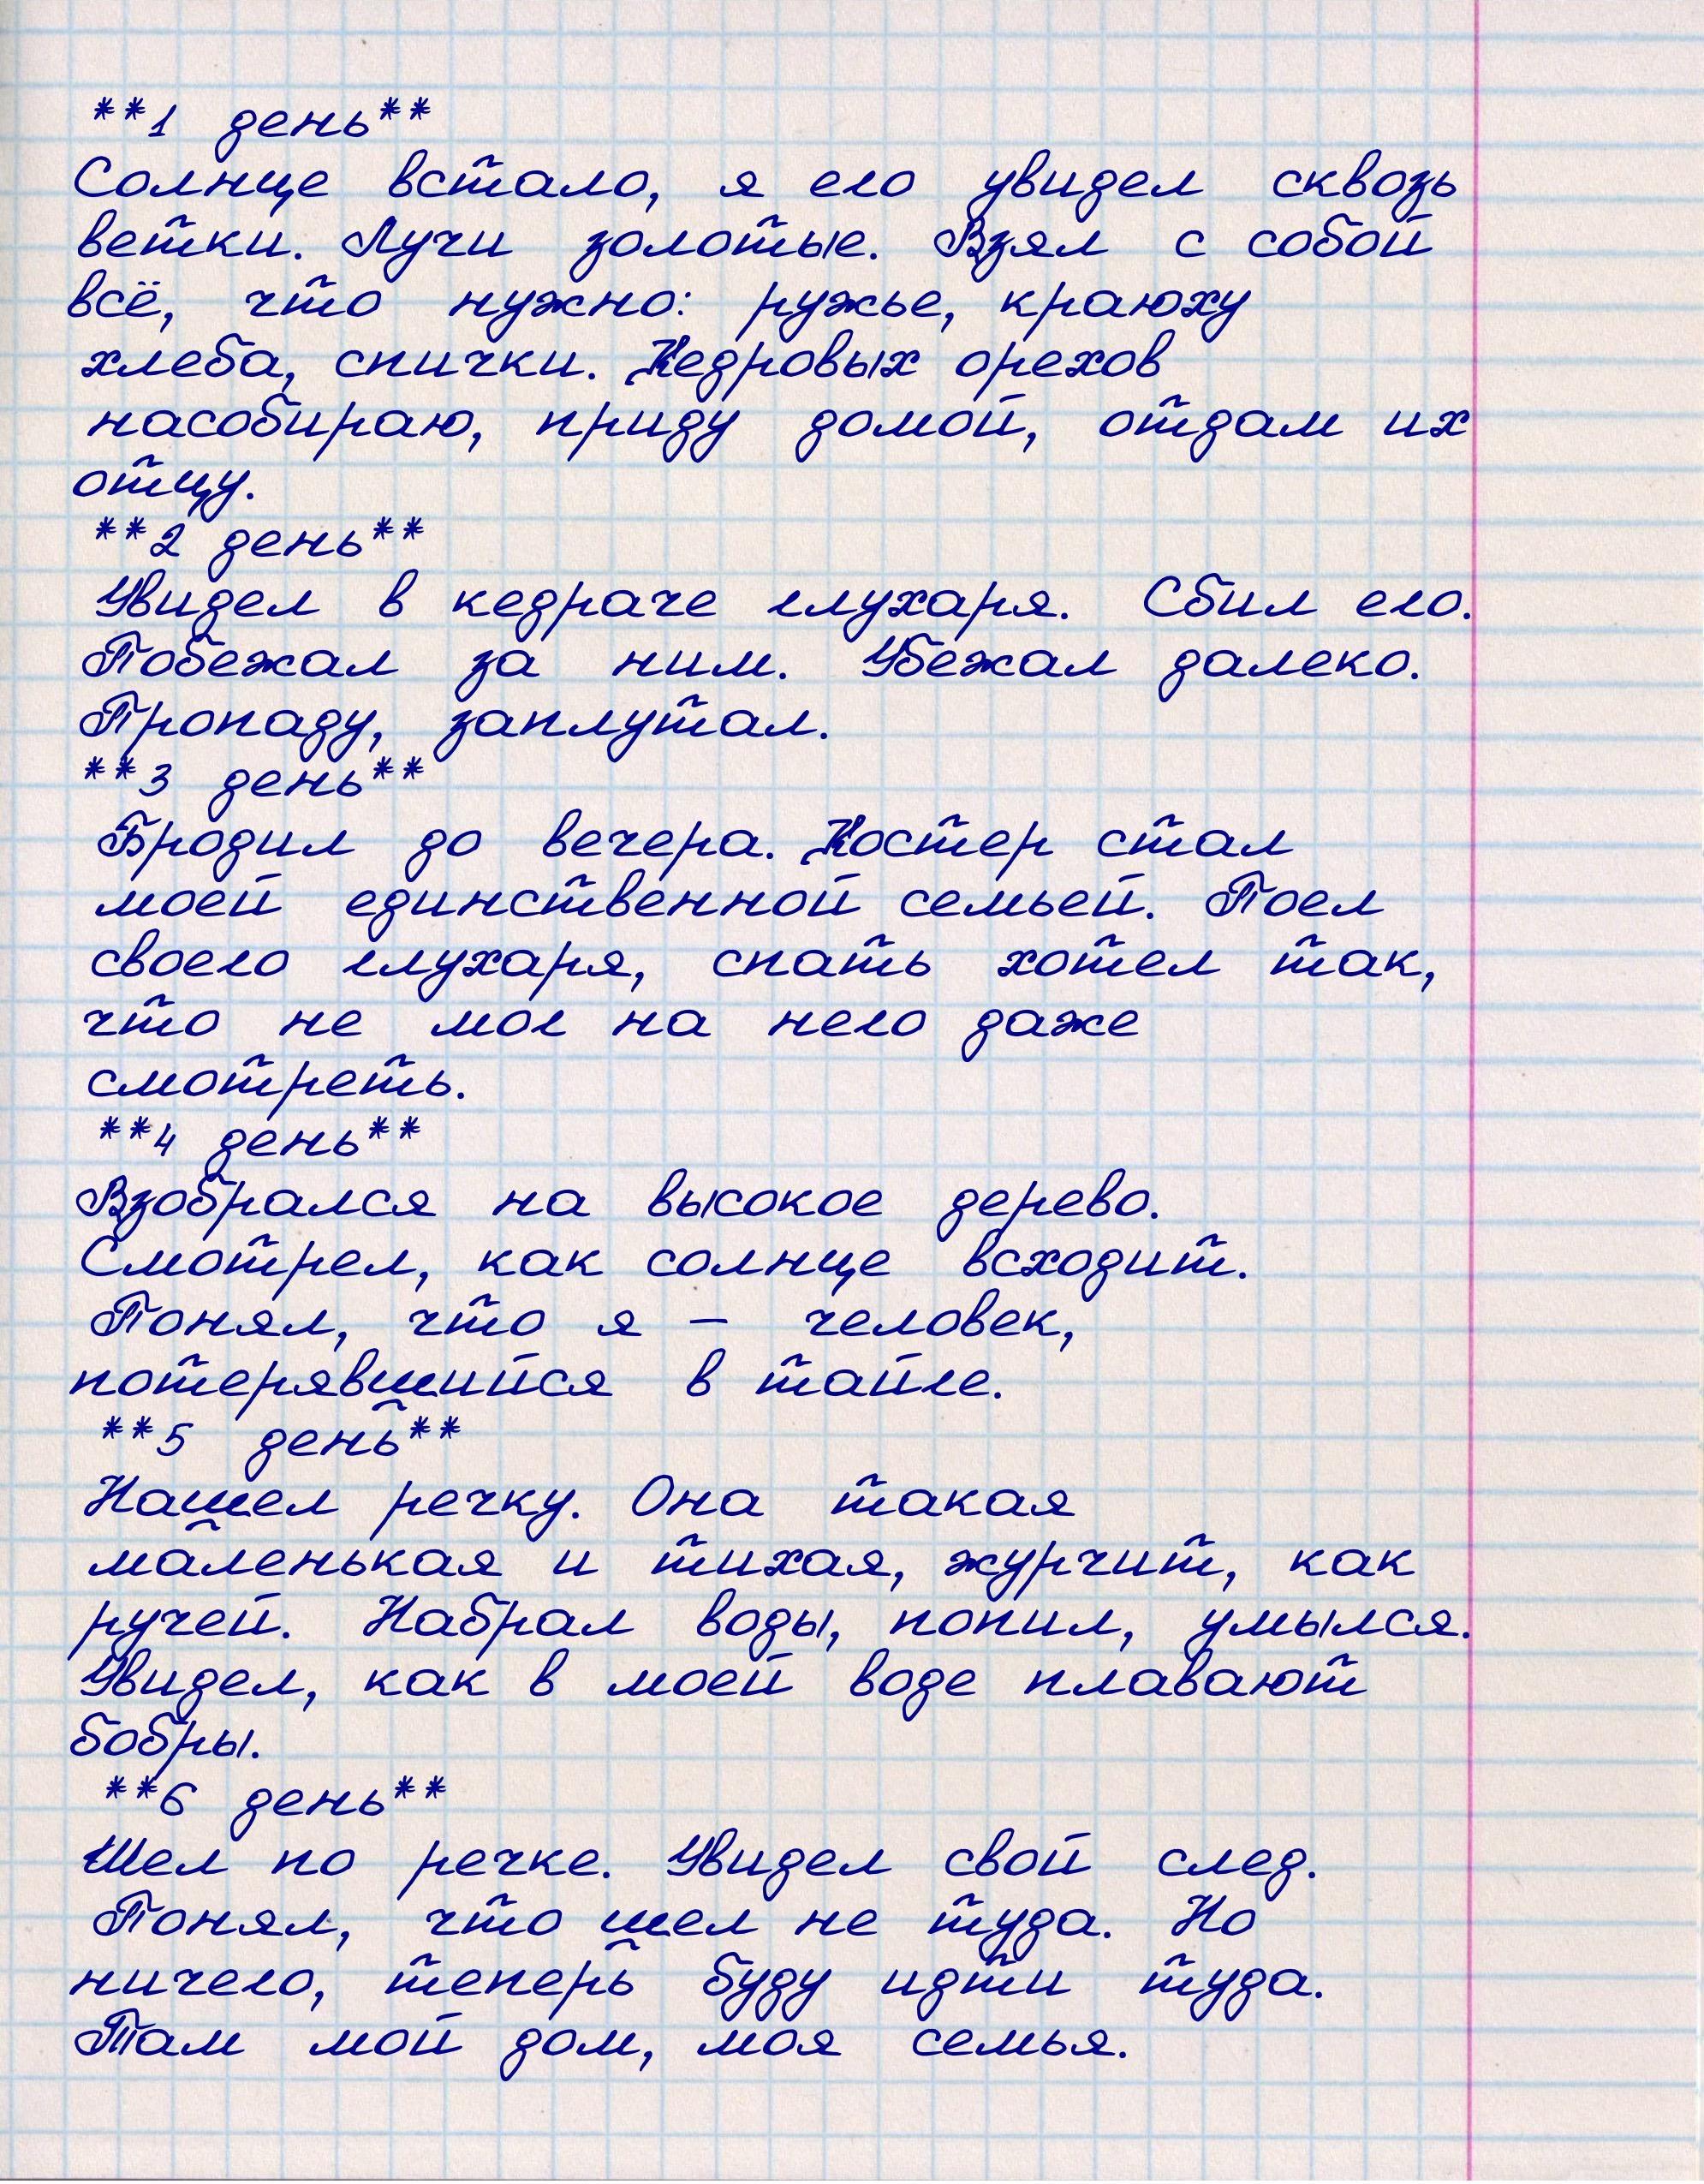 **1 день**
Солнце встало, я его увидел сквозь
ветки. Лучи золотые. Взял с собой
всё, что нужно: ружье, краюху
хлеба, спички. Кедровых орехов
насобираю, приду домой, отдам их
отцу.
**2 день**
Увидел в кедраче глухаря. Сбил его.
Побежал за ним. Убежал далеко.
Пропаду, заплутал.
**3 день**
Бродил до вечера. Костер стал
моей единственной семьей. Поел
своего глухаря, спать хотел так,
что не мог на него даже
смотреть.
**4 день**
Взобрался на высокое дерево.
Смотрел, как солнце всходит.
Понял, что я – человек,
потерявшийся в тайге.
**5 день**
Нашел речку. Она такая
маленькая и тихая, журчит, как
ручей. Набрал воды, попил, умылся.
Увидел, как в моей воде плавают
бобры.
**6 день**
Шел по речке. Увидел свой след.
Понял, что шел не туда. Но
ничего, теперь буду идти туда.
Там мой дом, моя семья.